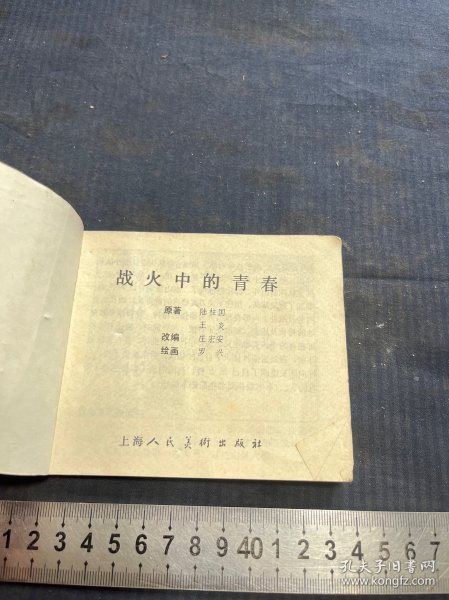 战火中的青春
原著 陆柱国
王炎
改编 庄宏安
绘画 罗兴
上海人民美術出版社
1 2 3 4 5 6 7 8 9 40 1 2 3 4 5 6 7
孔夫子旧书网
www.kongfz.com